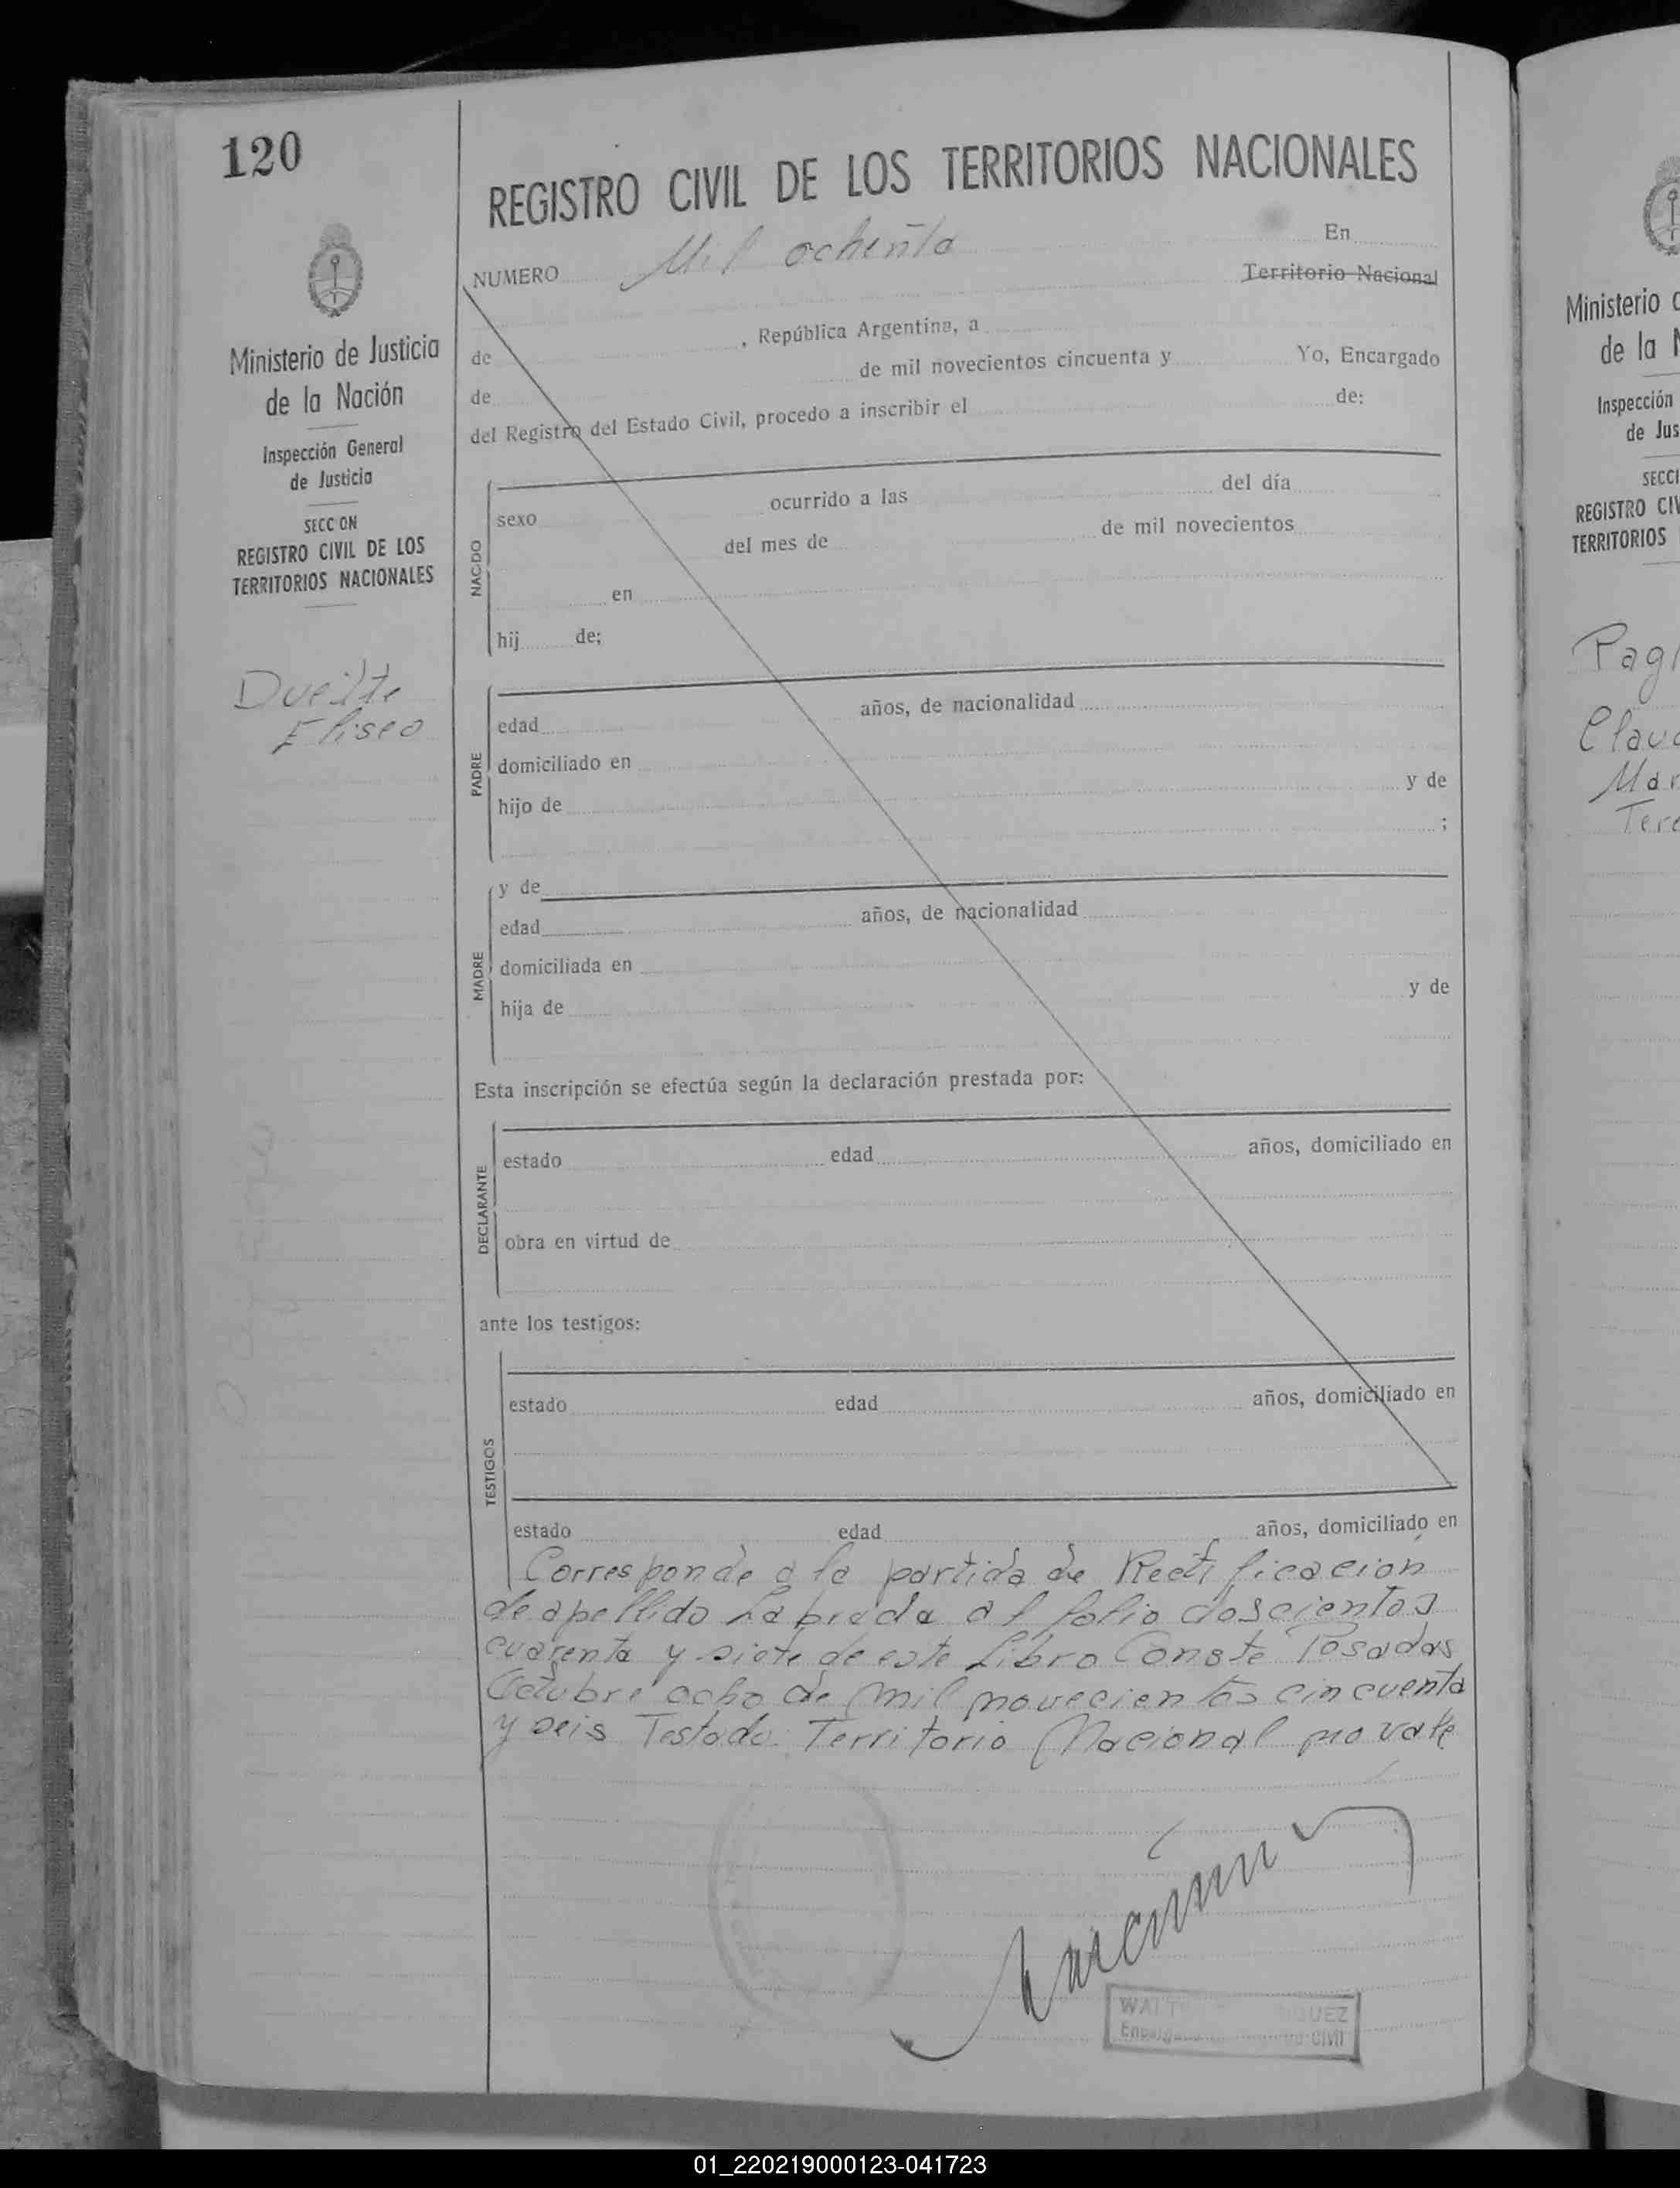 120
REGISTRO CIVIL DE LOS TERRITORIOS NACIONALES
NUMERO Mil ochenta En
Territorio Nacional
de , República Argentina, a
de de mil novecientos cincuenta y Yo, Encargado
del Registro del Estado Civil, procedo a inscribir el de:
Ministerio de Justicia
de la Nación
Inspección General
de Justicia
SECCION
REGISTRO CIVIL DE LOS
TERRITORIOS NACIONALES
Eliseo
NACIDO
sexo ocurrido a las del día
del mes de de mil novecientos
en
hij de;
PADRE
edad años, de nacionalidad
domiciliado en
hijo de y de
;
MADRE
y de
edad años, de nacionalidad
domiciliada en
hija de y de
Esta inscripción se efectúa según la declaración prestada por:
DECLARANTE
estado edad años, domiciliado en
obra en virtud de
ante los testigos:
TESTIGOS
estado edad años, domiciliado en
estado edad años, domiciliado en
Corresponde a la partida de Rectificacion
de apellido Labrada al folio doscientos
cuarenta y siete de este Libro Conste Posadas
Octubre ocho de mil novecientos cincuenta
y seis Testado: Territorio Nacional no vale
Civil
Ministerio
de la
Inspección
de Jus
SECCI
REGISTRO CIV
TERRITORIOS
Pagl
Clau
Mar
Tere
01_220219000123-041723